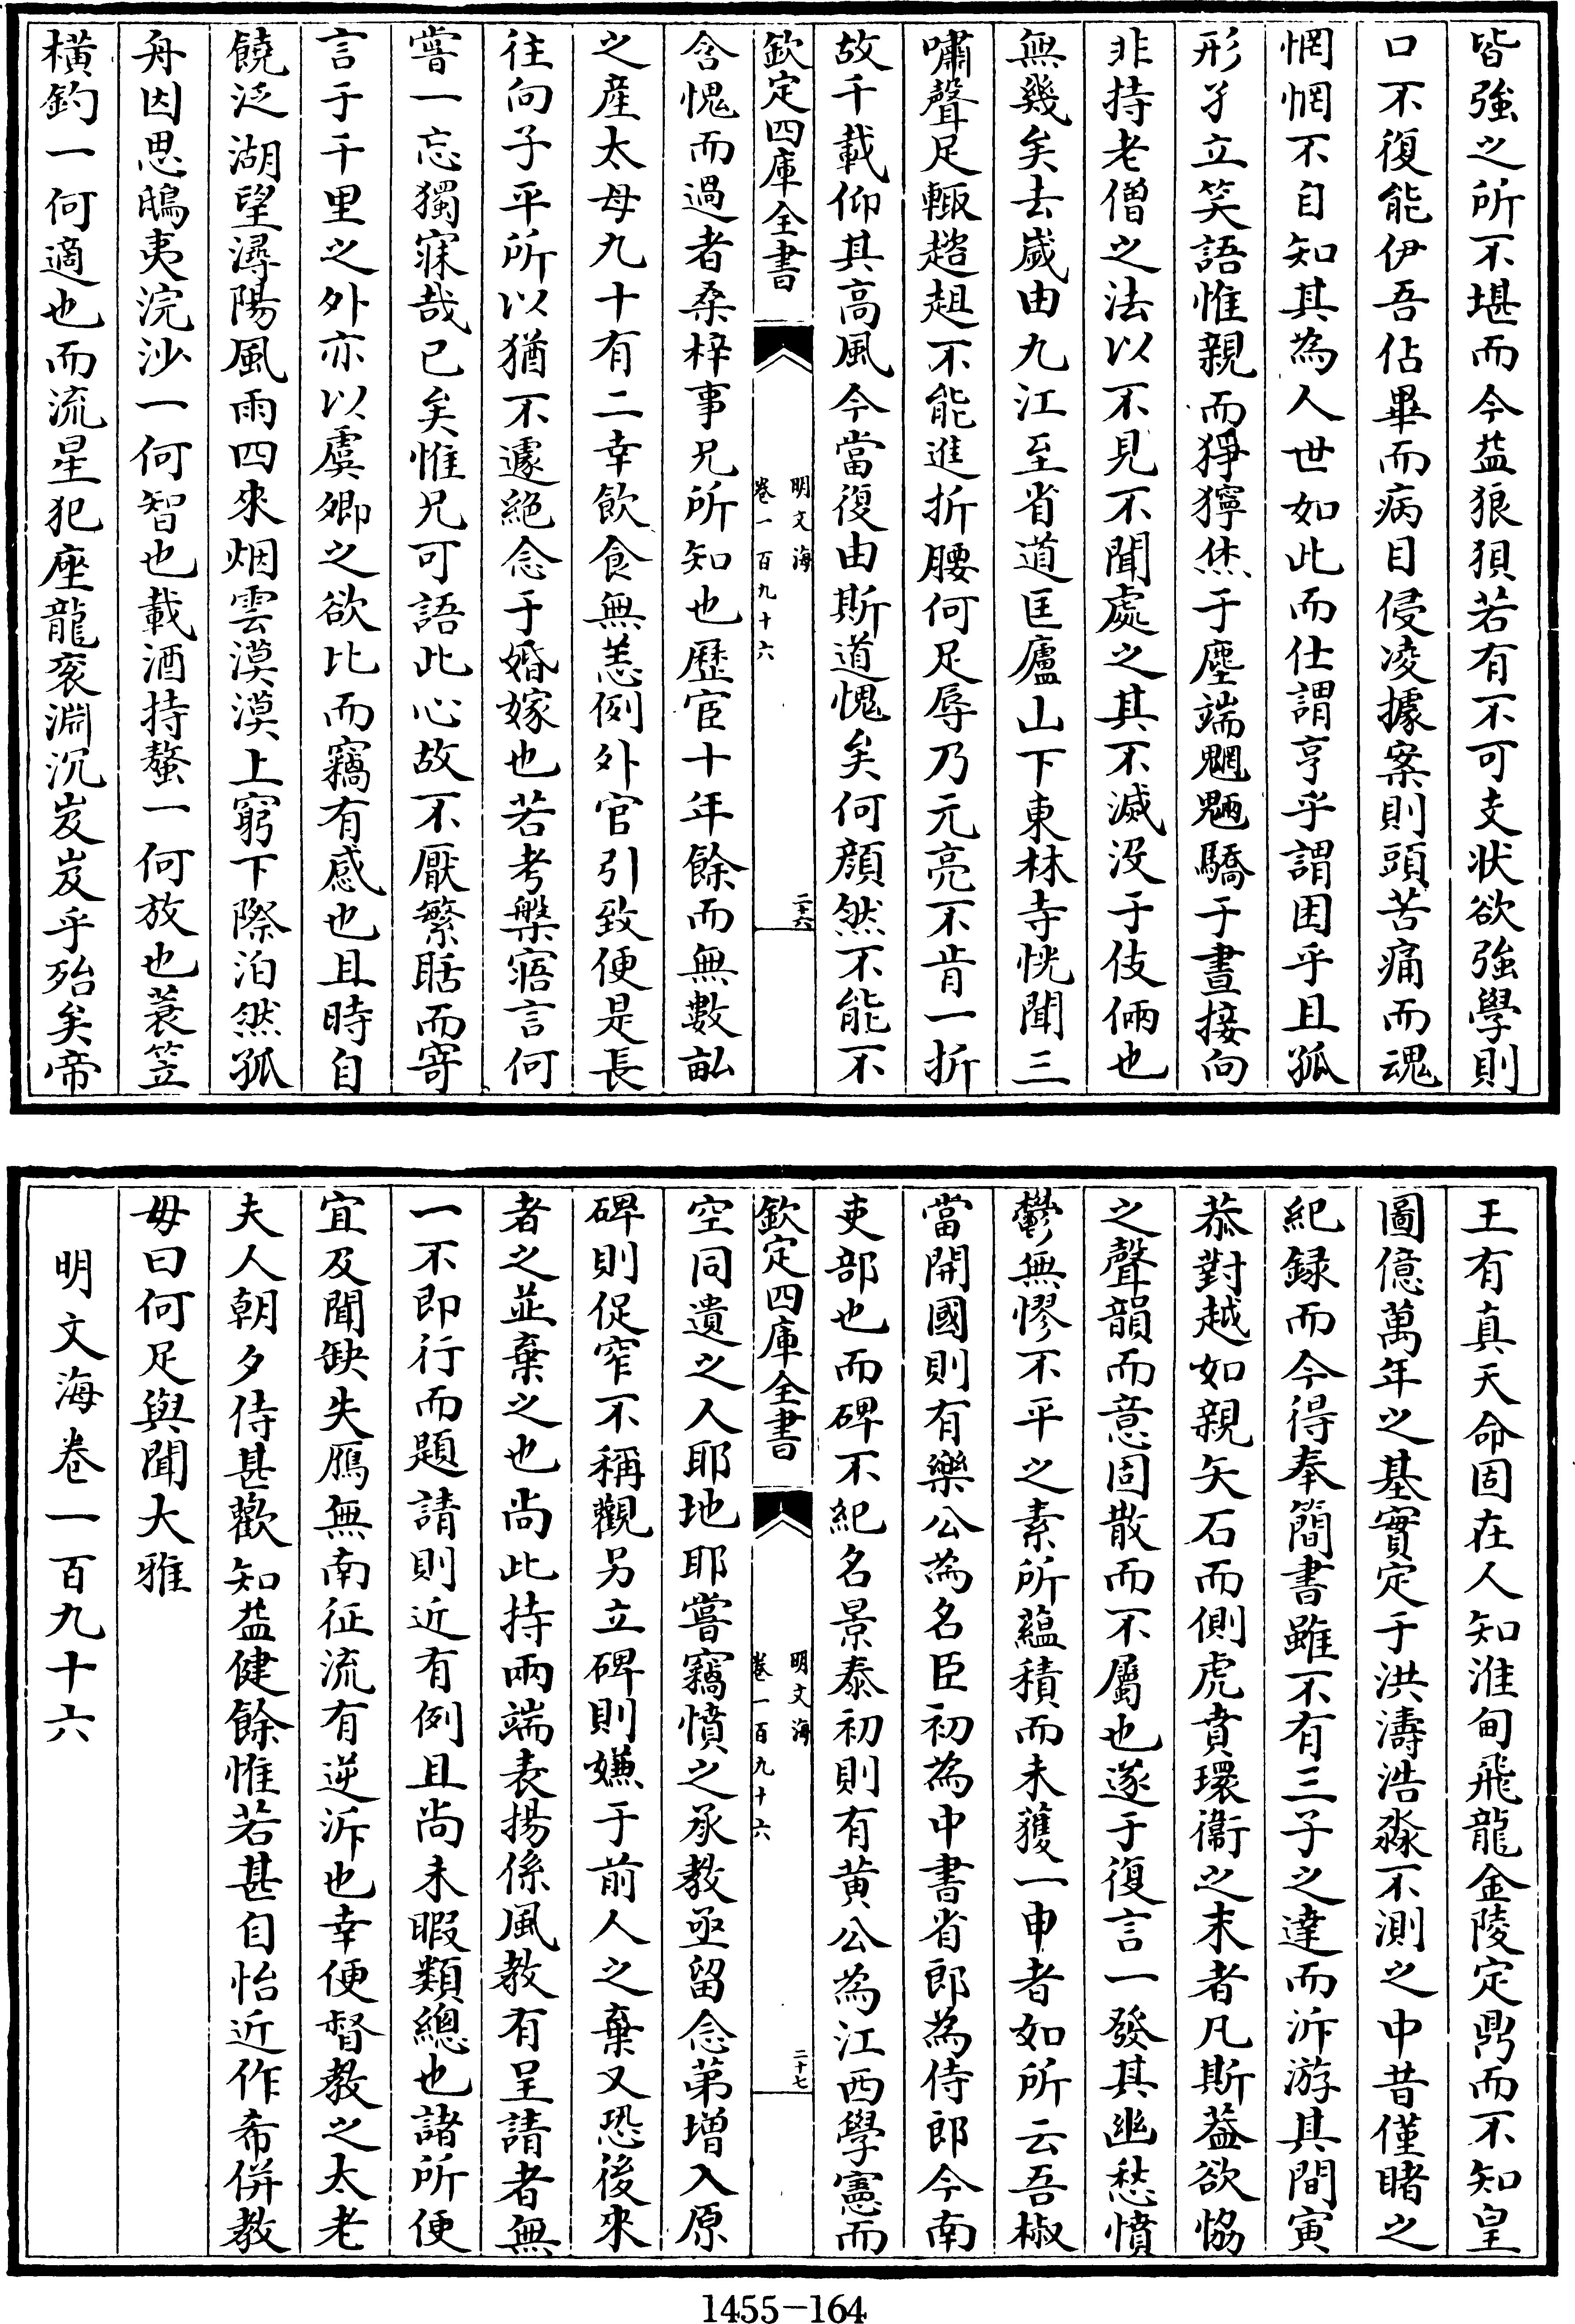 皆強之所不堪而今益狼狽若有不可支狀欲強學則
口不復能伊吾佔畢而病目侵凌據案則頭苦痛而魂
惘惘不自知其為人世如此而仕謂亨乎謂困乎且孤
形孑立笑語惟親而猙獰烋于塵端魍魎驕于晝接向
非持老僧之法以不見不聞處之其不滅没于伎倆也
無幾矣去嵗由九江至省道匡廬山下東林寺恍聞三
嘯聲足輙趦趄不能進折腰何足辱乃元亮不肯一折
故千載仰其高風今當復由斯道愧矣何顔然不能不
欽定四庫全書
明文海
卷一百九十六
二十六
含愧而過者桑梓事兄所知也歴宦十年餘而無數畆
之産太母九十有二幸飲食無恙例外官引致便是長
往向子平所以猶不遽絶念于婚嫁也若考槃寤言何
嘗一忘獨寐哉已矣惟兄可語此心故不厭繁聒而寄
言于千里之外亦以虞卿之欲比而竊有感也且時自
饒泛湖望潯陽風雨四來烟雲漠漠上窮下際泊然孤
舟因思鴟夷浣沙一何智也載酒持螯一何放也蓑笠
橫釣一何適也而流星犯座龍衮淵沉岌岌乎殆矣帝
王有真天命固在人知淮甸飛龍金陵定鼎而不知皇
圖億萬年之基實定于洪濤浩淼不測之中昔僅睹之
紀録而今得奉簡書雖不有三子之達而泝游其間寅
恭對越如親矢石而側虎賁環衞之末者凡斯葢欲恊
之聲韻而意固散而不屬也遂于復言一發其幽愁憤
鬱無憀不平之素所蘊積而未獲一申者如所云吾椒
當開國則有樂公為名臣初為中書省郎為侍郎今南
吏部也而碑不紀名景泰初則有黄公為江西學憲而
欽定四庫全書
明文海
卷一百九十六
二十七
空同遺之人耶地耶嘗竊憤之承教亟留念第增入原
碑則促窄不稱觀另立碑則嫌于前人之棄又恐後來
者之並棄之也尚此持兩端表揚係風教有呈請者無
一不即行而題請則近有例且尚未暇類總也諸所便
宜及聞缺失鴈無南征流有逆泝也幸便督教之太老
夫人朝夕侍甚歡知益健餘惟若甚自怡近作希併教
毋曰何足與聞大雅
明文海卷一百九十六
1455-164